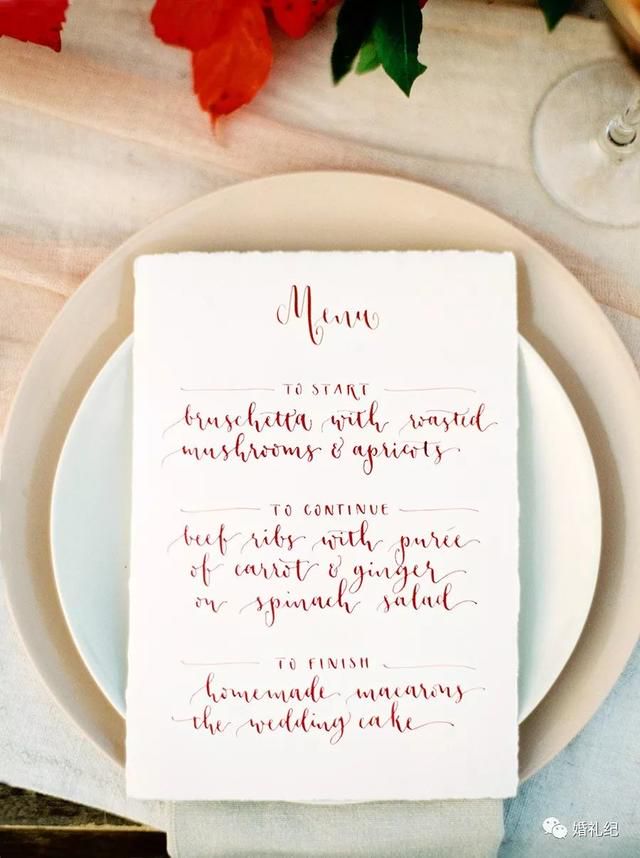 Menu
TO START
bruschetta with roasted
mushrooms & apricots
TO CONTINUE
beef ribs with purée
of carrot & ginger
on spinach salad
TO FINISH
homemade macarons
the wedding cake
婚礼纪